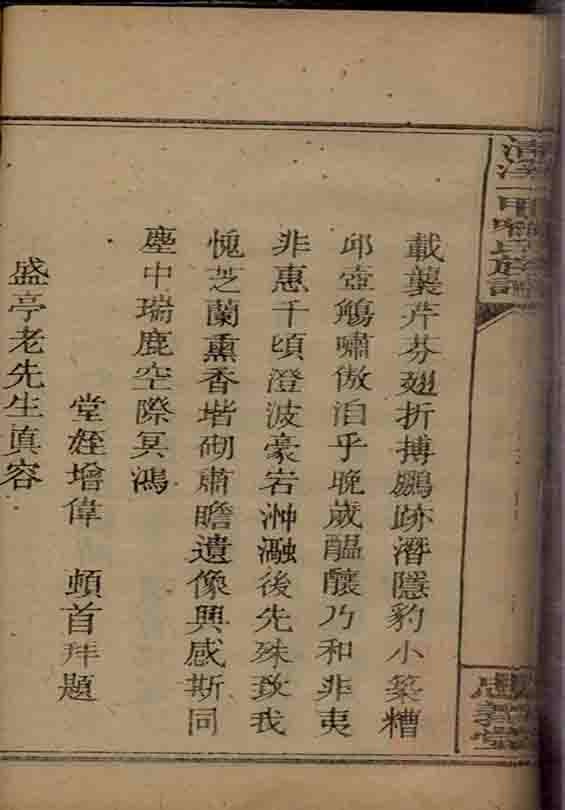 載襲芹芬翅折摶鵬跡潛隱豹小築糟
邱壺觴嘯傲洎乎晚歲醖釀乃和非夷
非惠千頃澄波豪宕沖瀜後先殊致我
愧芝蘭薰香堦砌肅瞻遺像興感斯同
塵中瑞鹿空際冥鴻
堂姪增偉 頓首拜題
盛亭老先生真容